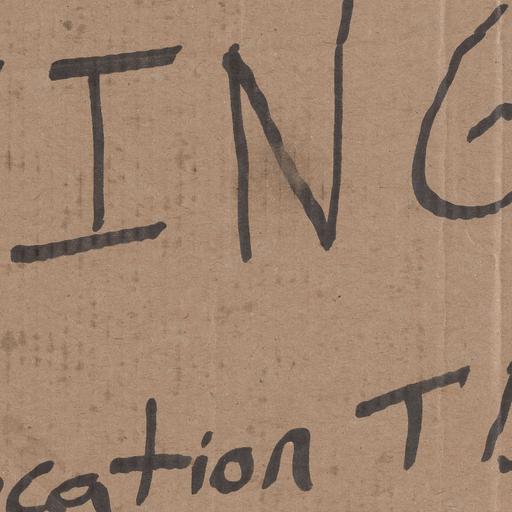 ING
cation T